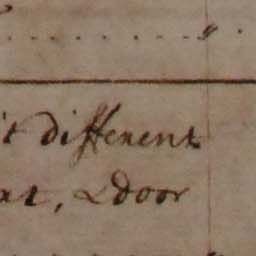 it different
at, & door